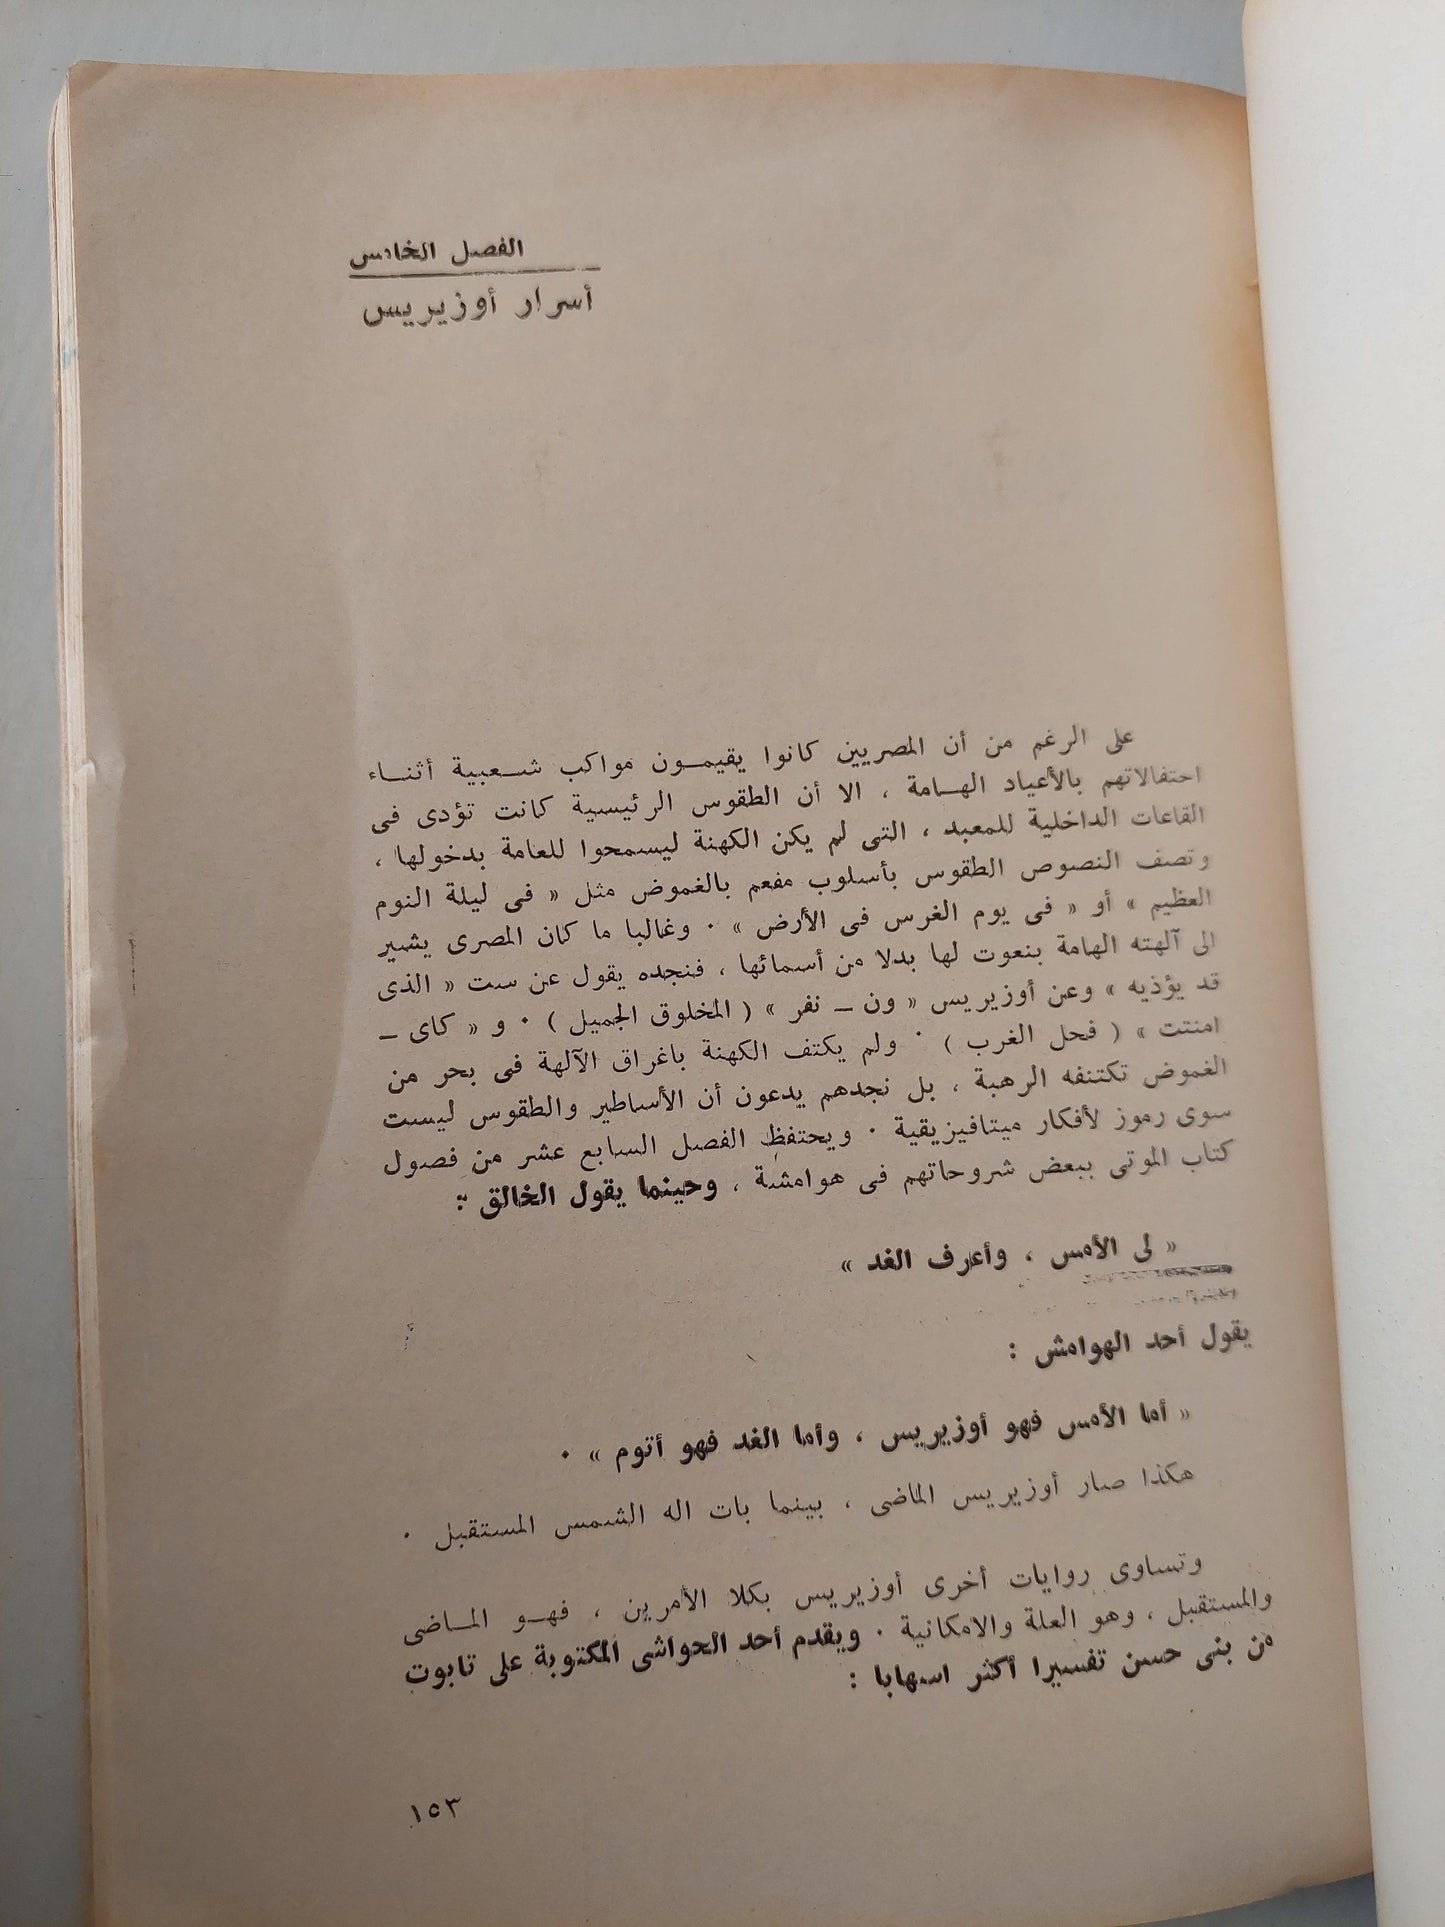 الفصل الخامس
أسرار أوزيريس
على الرغم من أن المصريين كانوا يقيمـــون مواكب شـــعبية أثنـــاء
احتفالاتهم بالأعياد الهـــامة ، الا أن الطقوس الرئيسية كانت تؤدى فى
القاعات الداخلية للمعبد ، التى لم يكن الكهنة ليسمحوا للعامة بدخولها ،
وتصف النصوص الطقوس بأسلوب مفعم بالغموض مثل « فى ليلة النوم
العظيم » أو « فى يوم الغرس فى الأرض » ٠ وغالبا ما كان المصرى يشير
الى آلهته الهامة بنعوت لها بدلا من أسمائها ، فنجده يقول عن ست « الذى
قد يؤذيه » وعن أوزيريس « ون ــ نفر » ( المخلوق الجميل ) ٠ و « كاى ــ
امنتت » ( فحل الغرب ) ٠ ولم يكتف الكهنة باغراق الآلهة فى بحر من
الغموض تكتنفه الرهبة ، بل نجدهم يدعون أن الأساطير والطقوس ليست
سوى رموز لأفكار ميتافيزيقية ٠ ويحتفظ الفصل السابع عشر من فصول
كتاب الموتى ببعض شروحاتهم فى هوامشة ، وحينما يقول الخالق :
« لى الأمس ، وأعرف الغد »
يقول أحد الهوامش :
« أما الأمس فهو أوزيريس ، وأما الغد فهو أتوم » ٠
هكذا صار أوزيريس الماضى ، بينما بات اله الشمس المستقبل ٠
وتساوى روايات أخرى أوزيريس بكلا الأمرين ، فهـــو المـــاضى
والمستقبل ، وهو العلة والامكانية ٠ ويقدم أحد الحواشى المكتوبة على تابوت
من بنى حسن تفسيرا أكثر اسهابا :
١٥٣